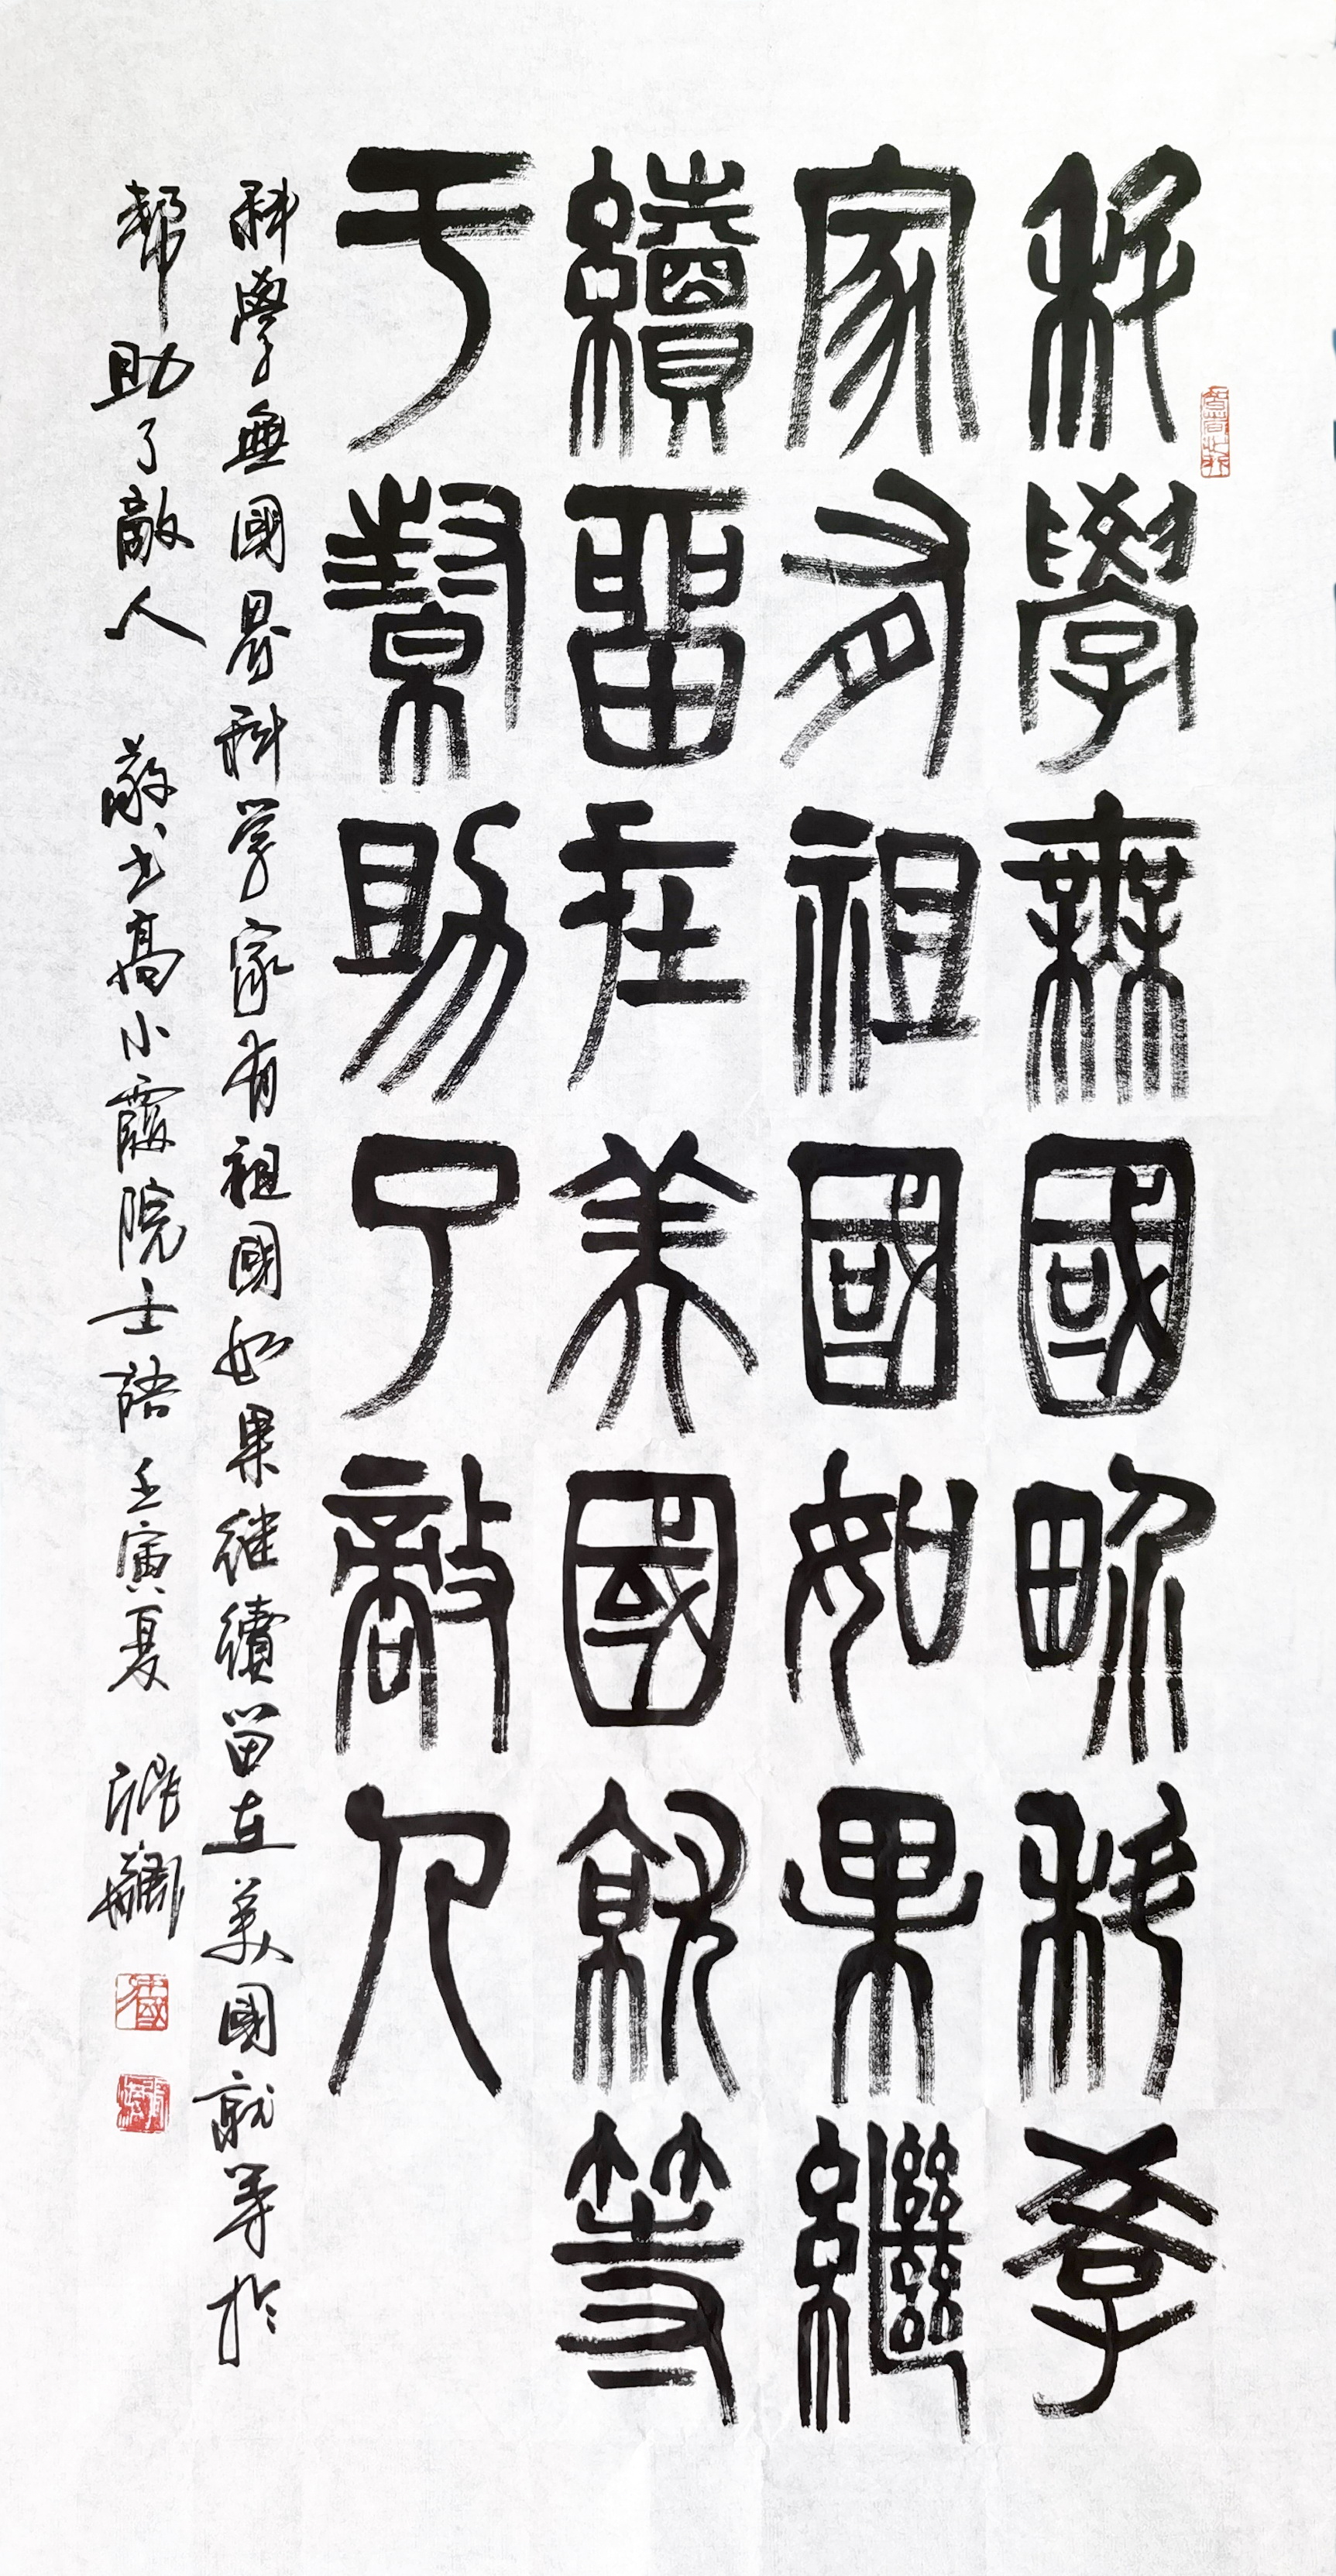 科學無國界科學
家有祖國如果繼
續留在美國就等
于幫助了敵人
科學無國界科学家有祖國如果继續留在美國就等於
幫助了敵人 敬书高小霞院士語 壬寅夏